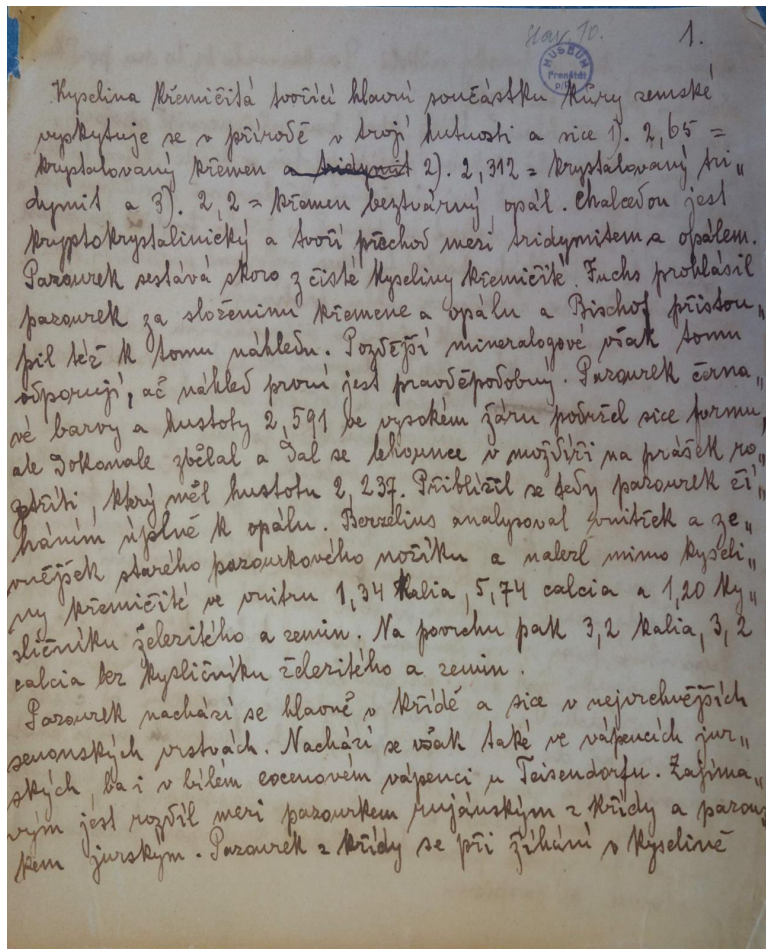 Slav. 10. 1.
MUSEUM Frenštát p/R.
Kyselina křemičitá tvořící hlavní součástku kůry zemské
vyskytuje se v přírodě v trojí hutnosti a sice 1). 2,65 =
krystalovaný křemen a tridymit 2). 2,312 = krystalovaný tri„
dymit a 3). 2,2 = křemen beztvárný, opál. Chalcedon jest
kryptokrystalinický a tvoří přechod mezi tridymitem a opálem.
Pazourek sestává skoro z čisté kyseliny křemičité. Fuchs prohlásil
pazourek za složeninu křemene a opálu a Bischof přistou„
pil též k tomu náhledu. Pozdější mineralogové však tomu
odporují, ač náhled první jest pravděpodobný. Pazourek černa„
vé barvy a hustoty 2,591 ve vysokém žáru podržel sice formu,
ale dokonale zbělal a dal se lehounce v moždíři na prášek ro„
ztříti, který měl hustotu 2,237. Přiblížil se tedy pazourek ží„
háním úplně k opálu. Berzelius analysoval vnitřek a ze„
vnějšek starého pazourkového nožíku a nalezl mimo kyseli„
ny křemičité ve vnitru 1,34 kalia, 5,74 calcia a 1,20 ky„
sličníku železitého a zemin. Na povrchu pak 3,2 kalia, 3,2
calcia bez kysličníku železitého a zemin.
Pazourek nachází se hlavně v křídě a sice v nejvrchnějších
senonských vrstvách. Nachází se však také ve vápencích jur„
ských, ba i v bílém eocenovém vápenci u Teisendorfu. Zajíma„
vým jest rozdíl mezi pazourkem rujánským z křídy a pazour„
kem jurským. Pazourek z křídy se při žíhání v kyselině